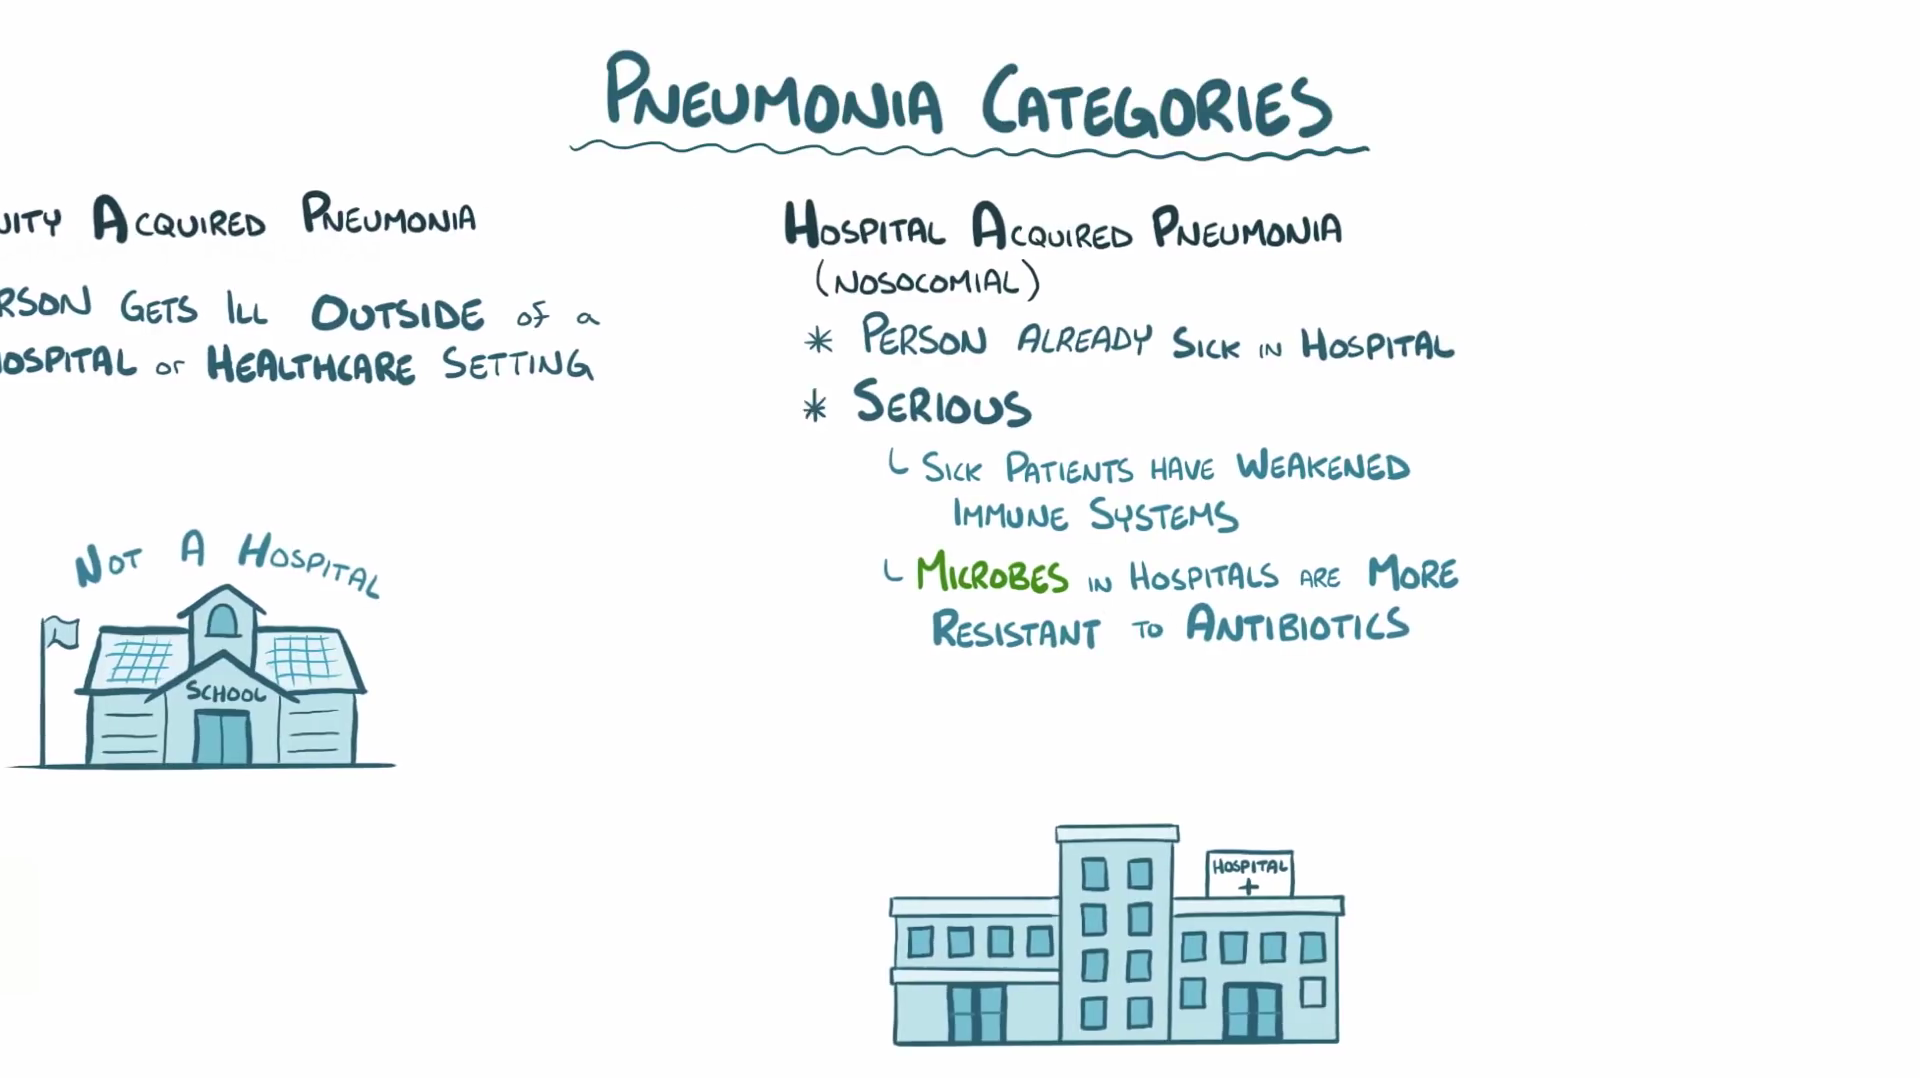 Pneumonia Categories
uity Acquired Pneumonia
rson Gets Ill Outside of a
ospital or Healthcare Setting
Not A Hospital
School
Hospital Acquired Pneumonia
(nosocomial)
* Person Already Sick in Hospital
* Serious
Sick Patients have Weakened
Immune Systems
Microbes in Hospitals are More
Resistant to Antibiotics
Hospital
+